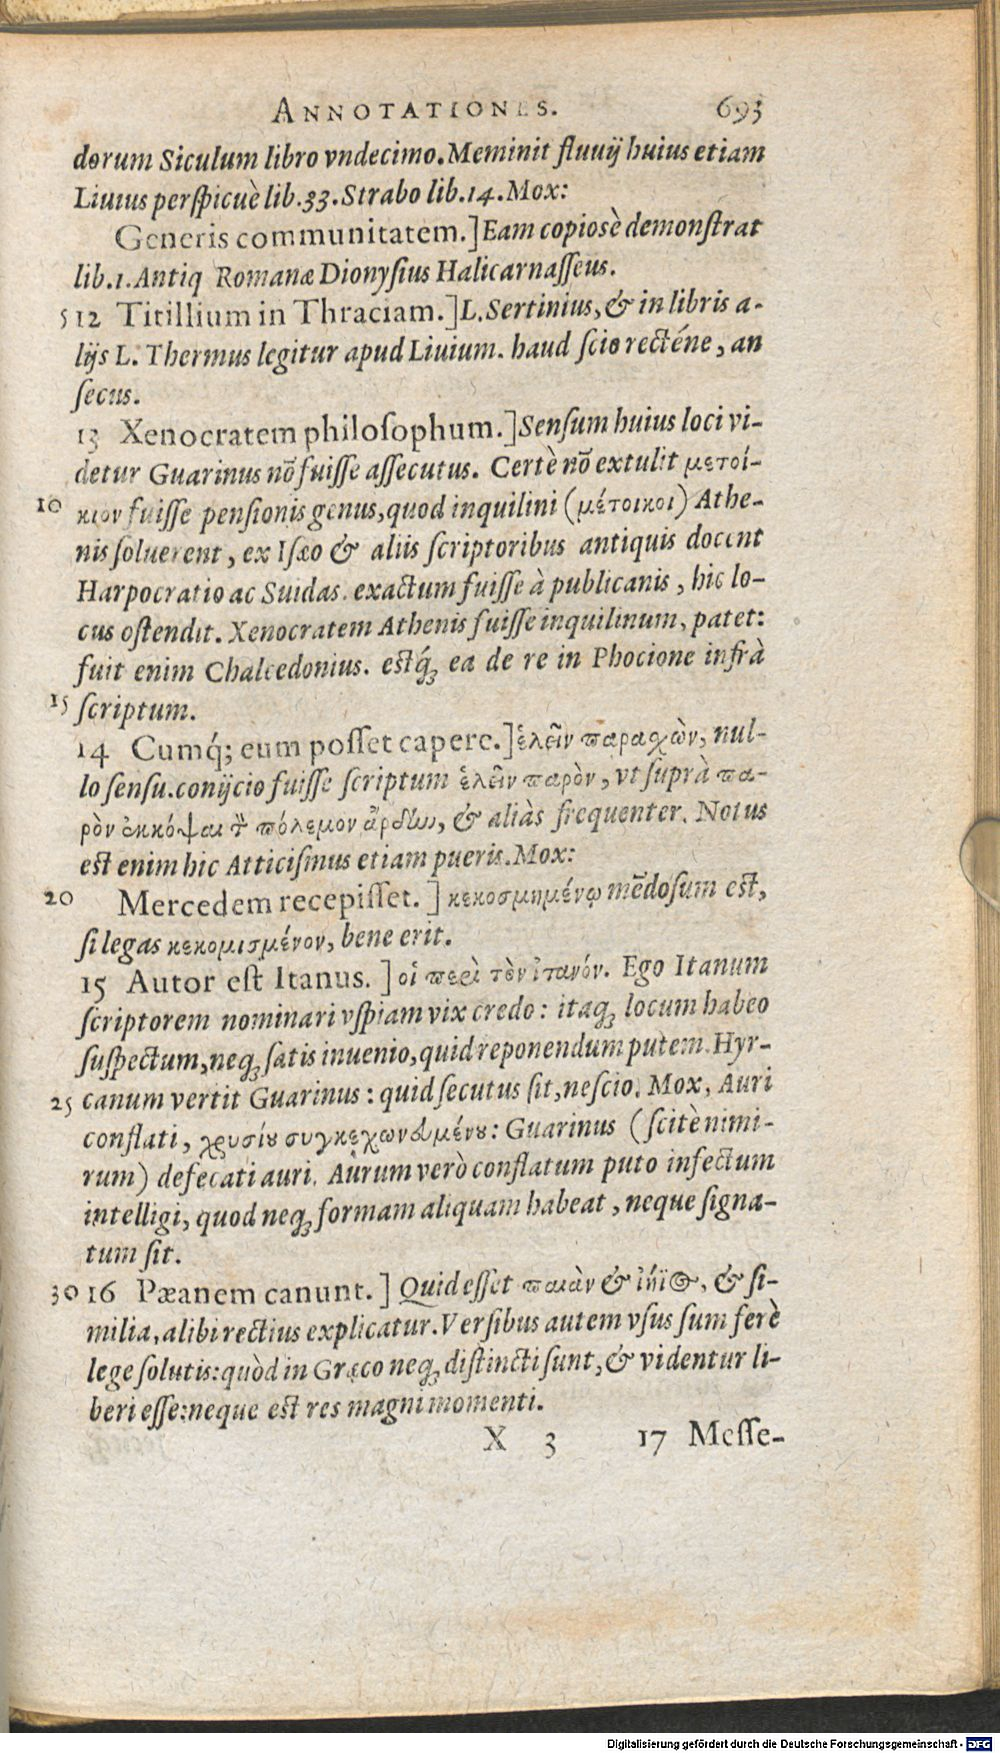 ANNOTATIONES. 693
dorum Siculum libro vndecimo. Meminit fluuij huius etiam
Liuius perspicuè lib.33. Strabo lib.14. Mox:
Generis communitatem.] Eam copiosè demonstrat
lib.1. Antiq Romanæ Dionysius Halicarnasseus.
5 12 Titillium in Thraciam.] L. Sertinius, & in libris a-
lijs L. Thermus legitur apud Liuium. haud scio recténe, an
secus.
13 Xenocratem philosophum.] Sensum huius loci vi-
detur Guarinus nõ fuisse assecutus. Certè nõ extulit μετοί-
10 κιον fuisse pensionis genus, quod inquilini (μέτοικοι) Athe-
nis soluerent, ex Isæo & aliis scriptoribus antiquis docent
Harpocratio ac Suidas. exactum fuisse à publicanis, hic lo-
cus ostendit. Xenocratem Athenis fuisse inquilinum, patet:
fuit enim Chalcedonius. estq́; ea de re in Phocione infrà
15 scriptum.
14 Cumq́; eum posset capere.] ἑλεῖν παραχὼν, nul-
lo sensu. conijcio fuisse scriptum ἑλεῖν παρὸν, vt suprà πα-
ρὸν ἐκκόψαι τ πόλεμον ἄρδην, & aliàs frequenter. Notus
est enim hic Atticismus etiam pueris. Mox:
20 Mercedem recepisset.] κεκοσμημένῳ mẽdosum est,
si legas κεκομισμένον, bene erit.
15 Autor est Itanus.] οἱ περὶ τὸν ἰτανόν. Ego Itanum
scriptorem nominari vspiam vix credo: itaq; locum habeo
suspectum, neq; satis inuenio, quid reponendum putem. Hyr-
25 canum vertit Guarinus: quid secutus sit, nescio. Mox, Auri
conflati, χρυσίου συγκεχωνευμένου: Guarinus (scitè nimi-
rum) defecati auri. Aurum verò conflatum puto infectum
intelligi, quod neq; formam aliquam habeat, neque signa-
tum sit.
30 16 Pæanem canunt.] Quid esset παιὰν & ἰήϊος, & si-
milia, alibi rectius explicatur. Versibus autem vsus sum ferè
lege solutis: quòd in Græco neq; distincti sunt, & videntur li-
beri esse: neque est res magni momenti.
X 3 17 Messe-
Digitalisierung gefördert durch die Deutsche Forschungsgemeinschaft - DFG